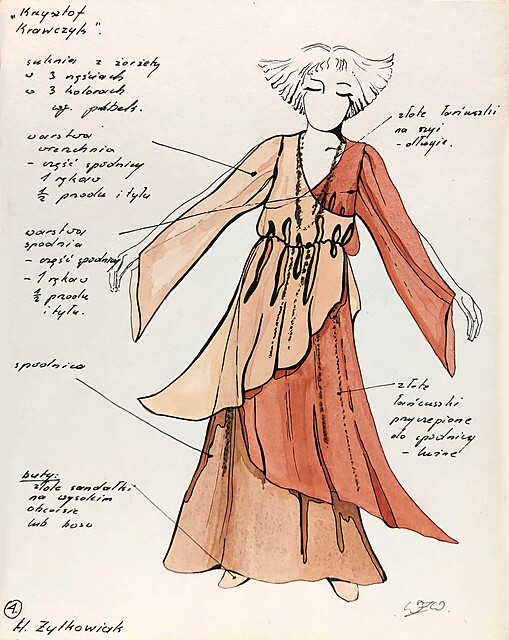 „Krzysztof
Krawczyk".
suknia z żorżety
w 3 częściach
w 3 kolorach
wg. próbek.
warstwa
wierzchnia
- część spódnicy
1 rękaw
1/2 przodu i tyłu
warstwa
spodnia
- część spódnicy
- 1 rękaw
1/2 przodu
i tyłu.
spódnica
buty:
złote sandałki
na wysokim
obcasie
lub boso
złote łańcuszki
na szyi
- długie.
złote
łańcuszki
przyczepione
do spódnicy
- luźne
4.
H. Żytkowiak